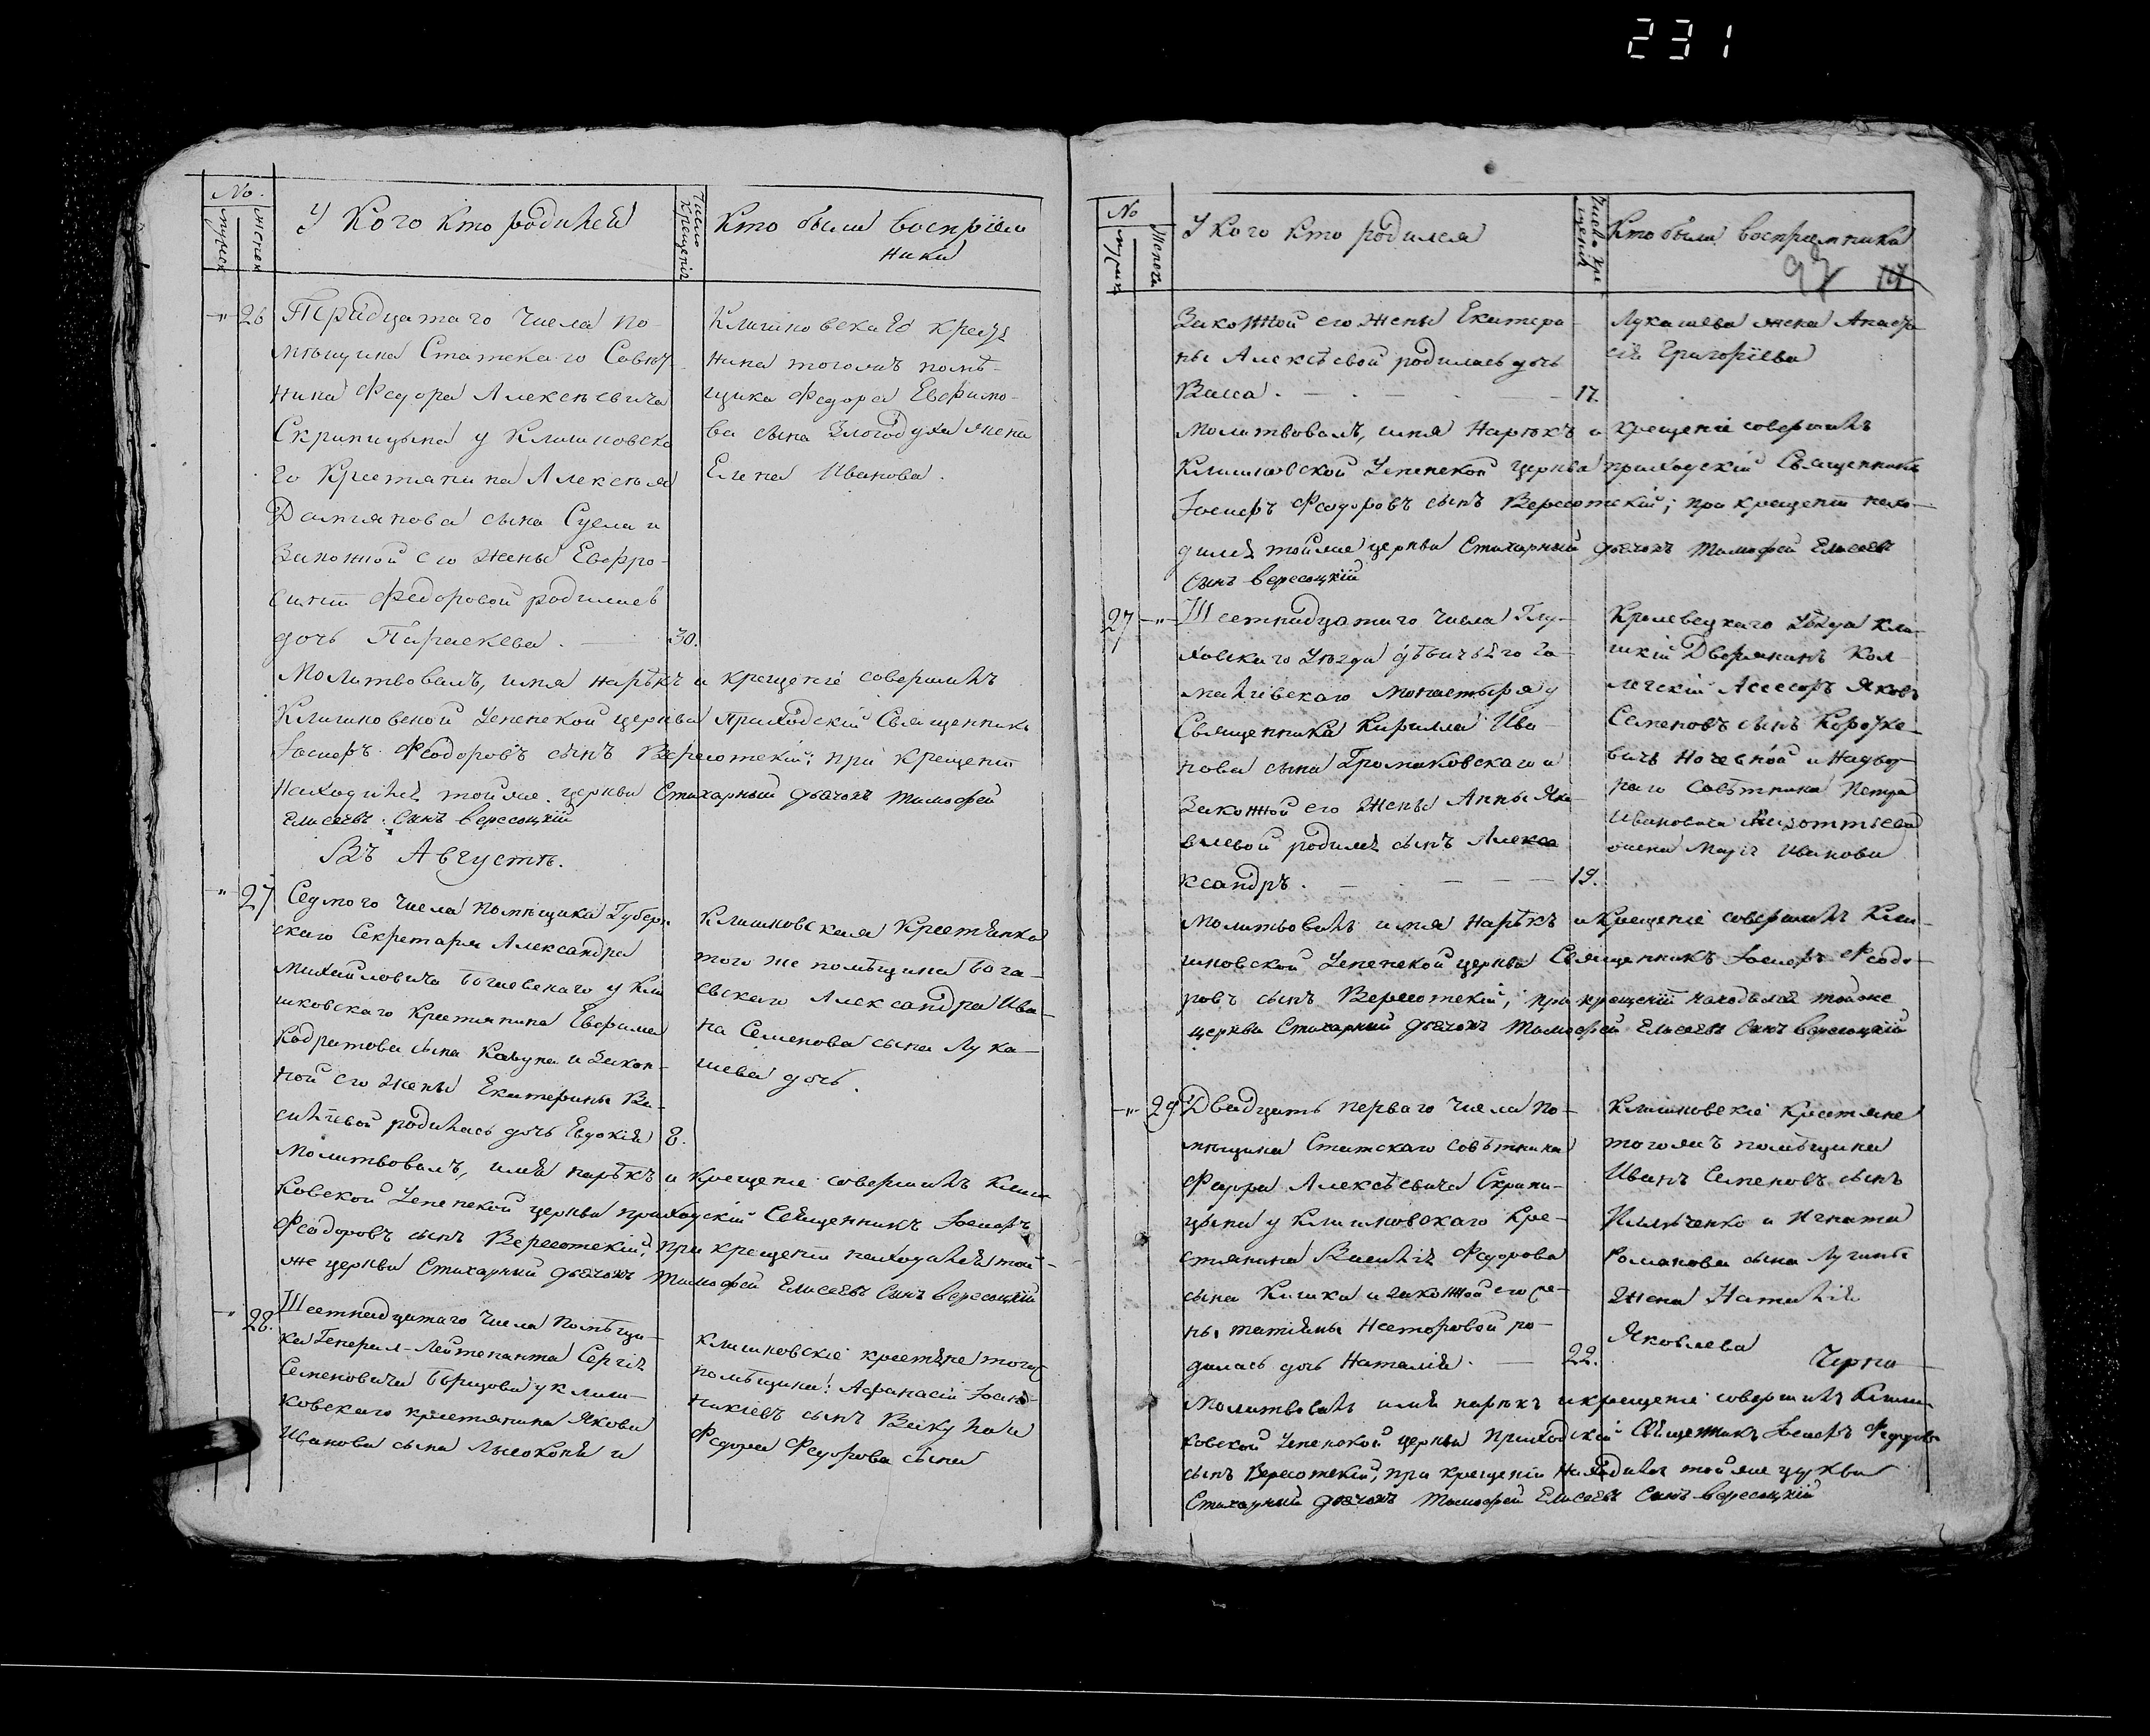 231
No
мужеск
женск
У Кого Кто родился
Число Крещенія
Кто были воспріем
ники
26 Тридцатаго числа по-
мѣщика Статскаго Совѣт
ника Федора Алексѣевича
Скрипицына у Клишковска
го Крестьянина Алексѣя
Дамiянова сына Сусла и
Законной его жены Евфро-
синіи Федоровой родилась
дочь Параскева. 30.
Клишковскаго крестья
нина тогожъ помѣ-
щика Федора Евфимо-
ва сына жена
Елена Иванова.
Молитвовалъ, имя нарѣкъ и крещеніе совершилъ
Клишковской Успенской церкви Приходскій Священникъ
Іосифъ Феодоровъ сынъ Вересотскій; при крещеніи
находился тойже церкви Стихарный дьячокъ Тимофей
Елисеевъ Сынъ вересоцкій
Въ Августѣ.
27 Седмого числа помѣщика Губерн
скаго Секретаря Александра
Михайловича Богаевскаго у Кли
шковскаго Крестьянина Евфима
Кодратова сына Кавуна и Закон-
ной его жены Екатерины Ва-
силіевой родилась дочь Евдокія 8.
Клишковская Крестьянка
того же помѣщика Бога-
евскаго Александра Ива-
на Семенова сына Лука-
шева дочь.
Молитвовалъ, имя нарѣкъ и крещеніе совершилъ Клиш
ковской Успенской церкви приходскій Священникъ Іосифъ
Феодоровъ сынъ Вересотскій, при крещеніи находился той-
же церкви Стихарный дьячокъ Тимофей Елисеевъ Сынъ вересоцкій
28. Шестнадцатаго числа Помѣщи-
ка Генерал-Лейтенанта Сергія
Семеновича Борщова у Клиш-
ковскаго крестьянина Якова
Иванова сына Лысоконя и
Клишковскіе крестьяне тогожъ
помѣщика: Афанасій
сынъ и
Федора Федорова сына
No
мужск
Женска
У кого кто родился
Число кре
щенія
Кто были восприемники
97
Законной его жены Екатери-
ны Алексѣевой родилась дочь
Васса. 17.
Лукашева жена Анаста-
сія Григоріева
Молитвовалъ, имя Нарѣкъ и крещеніе совершилъ
Клишковской Успенской церкви приходскій Священникъ
Іосифъ Феодоровъ сынъ Вересотскій; при крещеніи нахо-
дился тойже церкви Стихарный дьячокъ Тимофей Елисеевъ
Сынъ вересоцкій
27 Шестнадцатаго числа Глу-
ховскаго Уѣзда дѣвичьяго Га-
малѣевскаго Монастыря у
Священника Кирилла Ива-
нова сына Громаковскаго и
Законной его жены Анны Яко-
влевой родился сынъ Алекса
ксандръ. 19.
Кролевецкаго уѣзда
Дворянинъ Кол-
лежскій Ассесоръ Яковъ
Семеновъ сынъ Коротке-
вичъ Ночевной и Надвор
наго Совѣтника Петра
Ивановича
жена Марія Иванова
Молитвовалъ имя Нарѣкъ и Крещеніе совершилъ Кли-
шковской Успенской церкви Священникъ Іосифъ Феодо-
ровъ сынъ Вересотскій, при крещеніи находился тойже
церкви Стихарный дьячокъ Тимофей Елисеевъ Сынъ вересоцкій
29 Двадцать перваго числа по-
мѣщика Статскаго совѣтника
Федора Алексѣевича Скрипи-
цына у Клишковскаго Кре-
стьянина Василія Федорова
сына Кишка и законной его же-
ны татіяны Несторовой ро-
дилась дочь Наталія. 22.
Клишковскіе Крестьяне
тогожъ помѣщика
Иванъ Семеновъ сынъ
и Игната
Романова сына
жена Наталія
Яковлева
Молитвовалъ имя нарѣкъ и крещеніе совершилъ Клиш-
ковской Успенской церкви Приходскій Священникъ Іосифъ Федоровъ
сынъ Вересотскій, при крещеніи Находился тойже церкви
Стихарный дьячокъ Тимофей Елисеевъ Сынъ вересоцкій